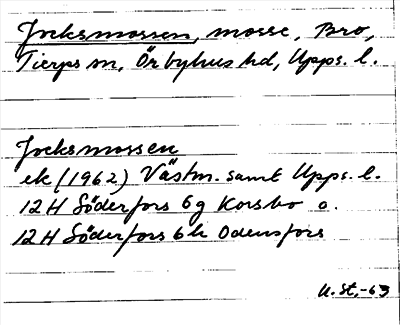 Jocksmossen, mosse, Bro,
Tierps sn, Örbyhus hd, Upps. l.
Jocksmossen
ek (1962) Västm. samt Upps. l.
12H Söderfors 6g Korsbo o.
12H Söderfors 6h Odensfors
U. St. -63